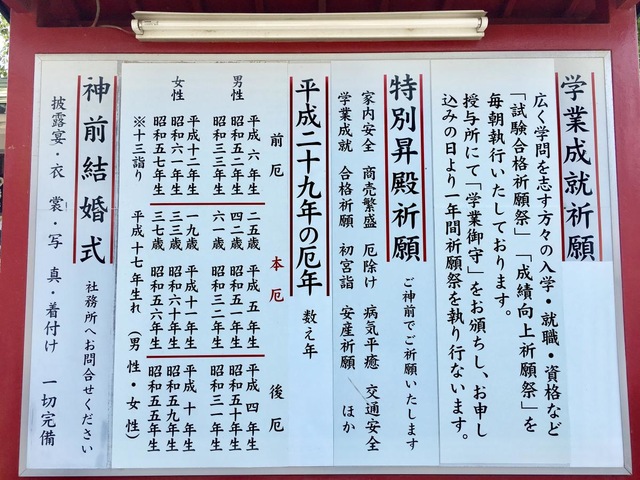 学業成就祈願
広く学問を志す方々の入学・就職・資格など
「試験合格祈願祭」「成績向上祈願祭」を
毎朝執行いたしております。
授与所にて「学業御守」をお頒ちし、お申し
込みの日より一年間祈願祭を執り行ないます。
特別昇殿祈願 ご神前でご祈願いたします
家内安全 商売繁盛 厄除け 病気平癒 交通安全
学業成就 合格祈願 初宮詣 安産祈願 ほか
平成二十九年の厄年 数え年
前厄 本厄 後厄
平成六年生 二五歳 平成五年生 平成四年生
男性 昭和五二年生 四二歳 昭和五一年生 昭和五十年生
昭和三三年生 六一歳 昭和三二年生 昭和三一年生
平成十二年生 一九歳 平成十一年生 平成十年生
女性 昭和六一年生 三三歳 昭和六十年生 昭和五九年生
昭和五七年生 三七歳 昭和五六年生 昭和五五年生
※十三詣り 平成十七年生れ (男性・女性)
神前結婚式 社務所へお問合せください
披露宴・衣裳・写真・着付け 一切完備